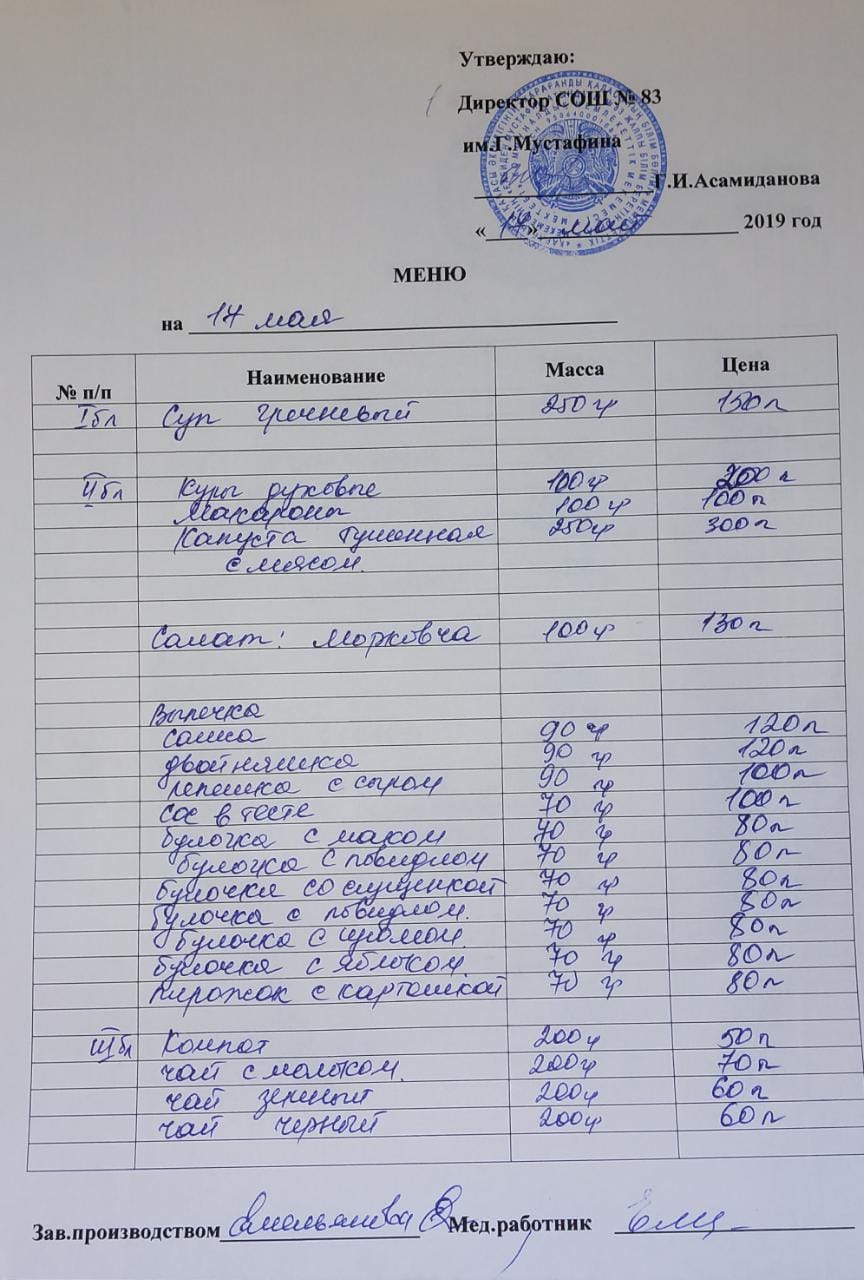 Утверждаю:
Директор СОШ № 83
им.Г.Мустафина
Г.И.Асамиданова
« 17 » мая 2019 год
МЕНЮ
на 17 мая
№ п/п Наименование Масса Цена
I бл Суп гречневый 250 гр 150 т
II бл Куры духовые 100 гр 200 т
Макароны 100 гр 100 т
Капуста тушенная 250 гр 300 т
с мясом.
Салат: Морковча 100 гр 130 т
Выпечка
самса 90 гр 120 т
двойняшка 90 гр 120 т
лепешка с сыром 90 гр 100 т
сос в тесте 70 гр 100 т
булочка с маком 70 гр 80 т
булочка с повидлом 70 гр 80 т
булочка со сгущенкой 70 гр 80 т
булочка с повидлом. 70 гр 80 т
булочка с 70 гр 80 т
булочка с яблоком. 70 гр 80 т
пирожок с картошкой 70 гр 80 т
III бл Компот 200 гр 50 т
чай с молоком. 200 гр 70 т
чай зеленый 200 гр 60 т
чай черный 200 гр 60 т
Зав.производством Мед.работник